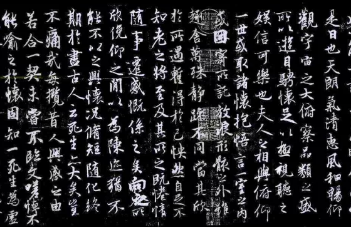 是日也天朗氣清惠風和暢仰
觀宇宙之大俯察品類之盛
所以遊目騁懷足以極視聽之
娛信可樂也夫人之相與俯仰
一世或取諸懷抱悟言一室之內
或因寄所託放浪形骸之外雖
趣舍萬殊靜躁不同當其欣
於所遇暫得於己快然自足不
知老之將至及其所之既惓情
隨事遷感慨係之矣向之所
欣俛仰之閒以為陳迹猶不
能不以之興懷況脩短隨化終
期於盡古人云死生亦大矣豈
不痛哉每攬昔人興感之由
若合一契未嘗不臨文嗟悼不
能喻之於懷固知一死生為虛